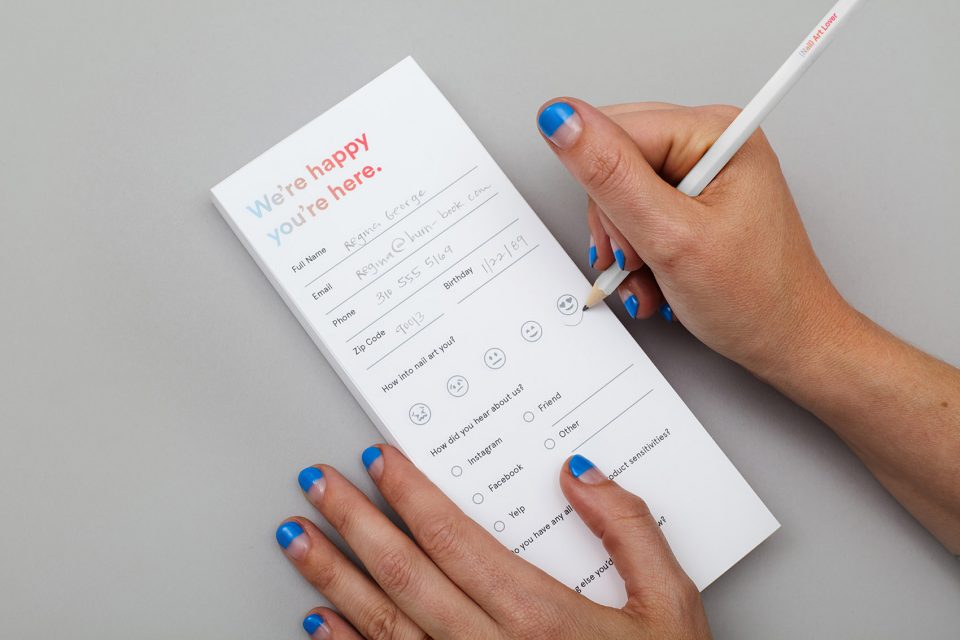 (Nail) Art Lover
We're happy
you're here.
Full Name Regina George
Email Regina@burn-book.com
Phone 310 555 5169
Zip Code 90013 Birthday 1/22/89
How into nail art you?
How did you hear about us?
Instagram Friend
Facebook Other
Yelp
you have any all oduct sensitivities?
else you'd